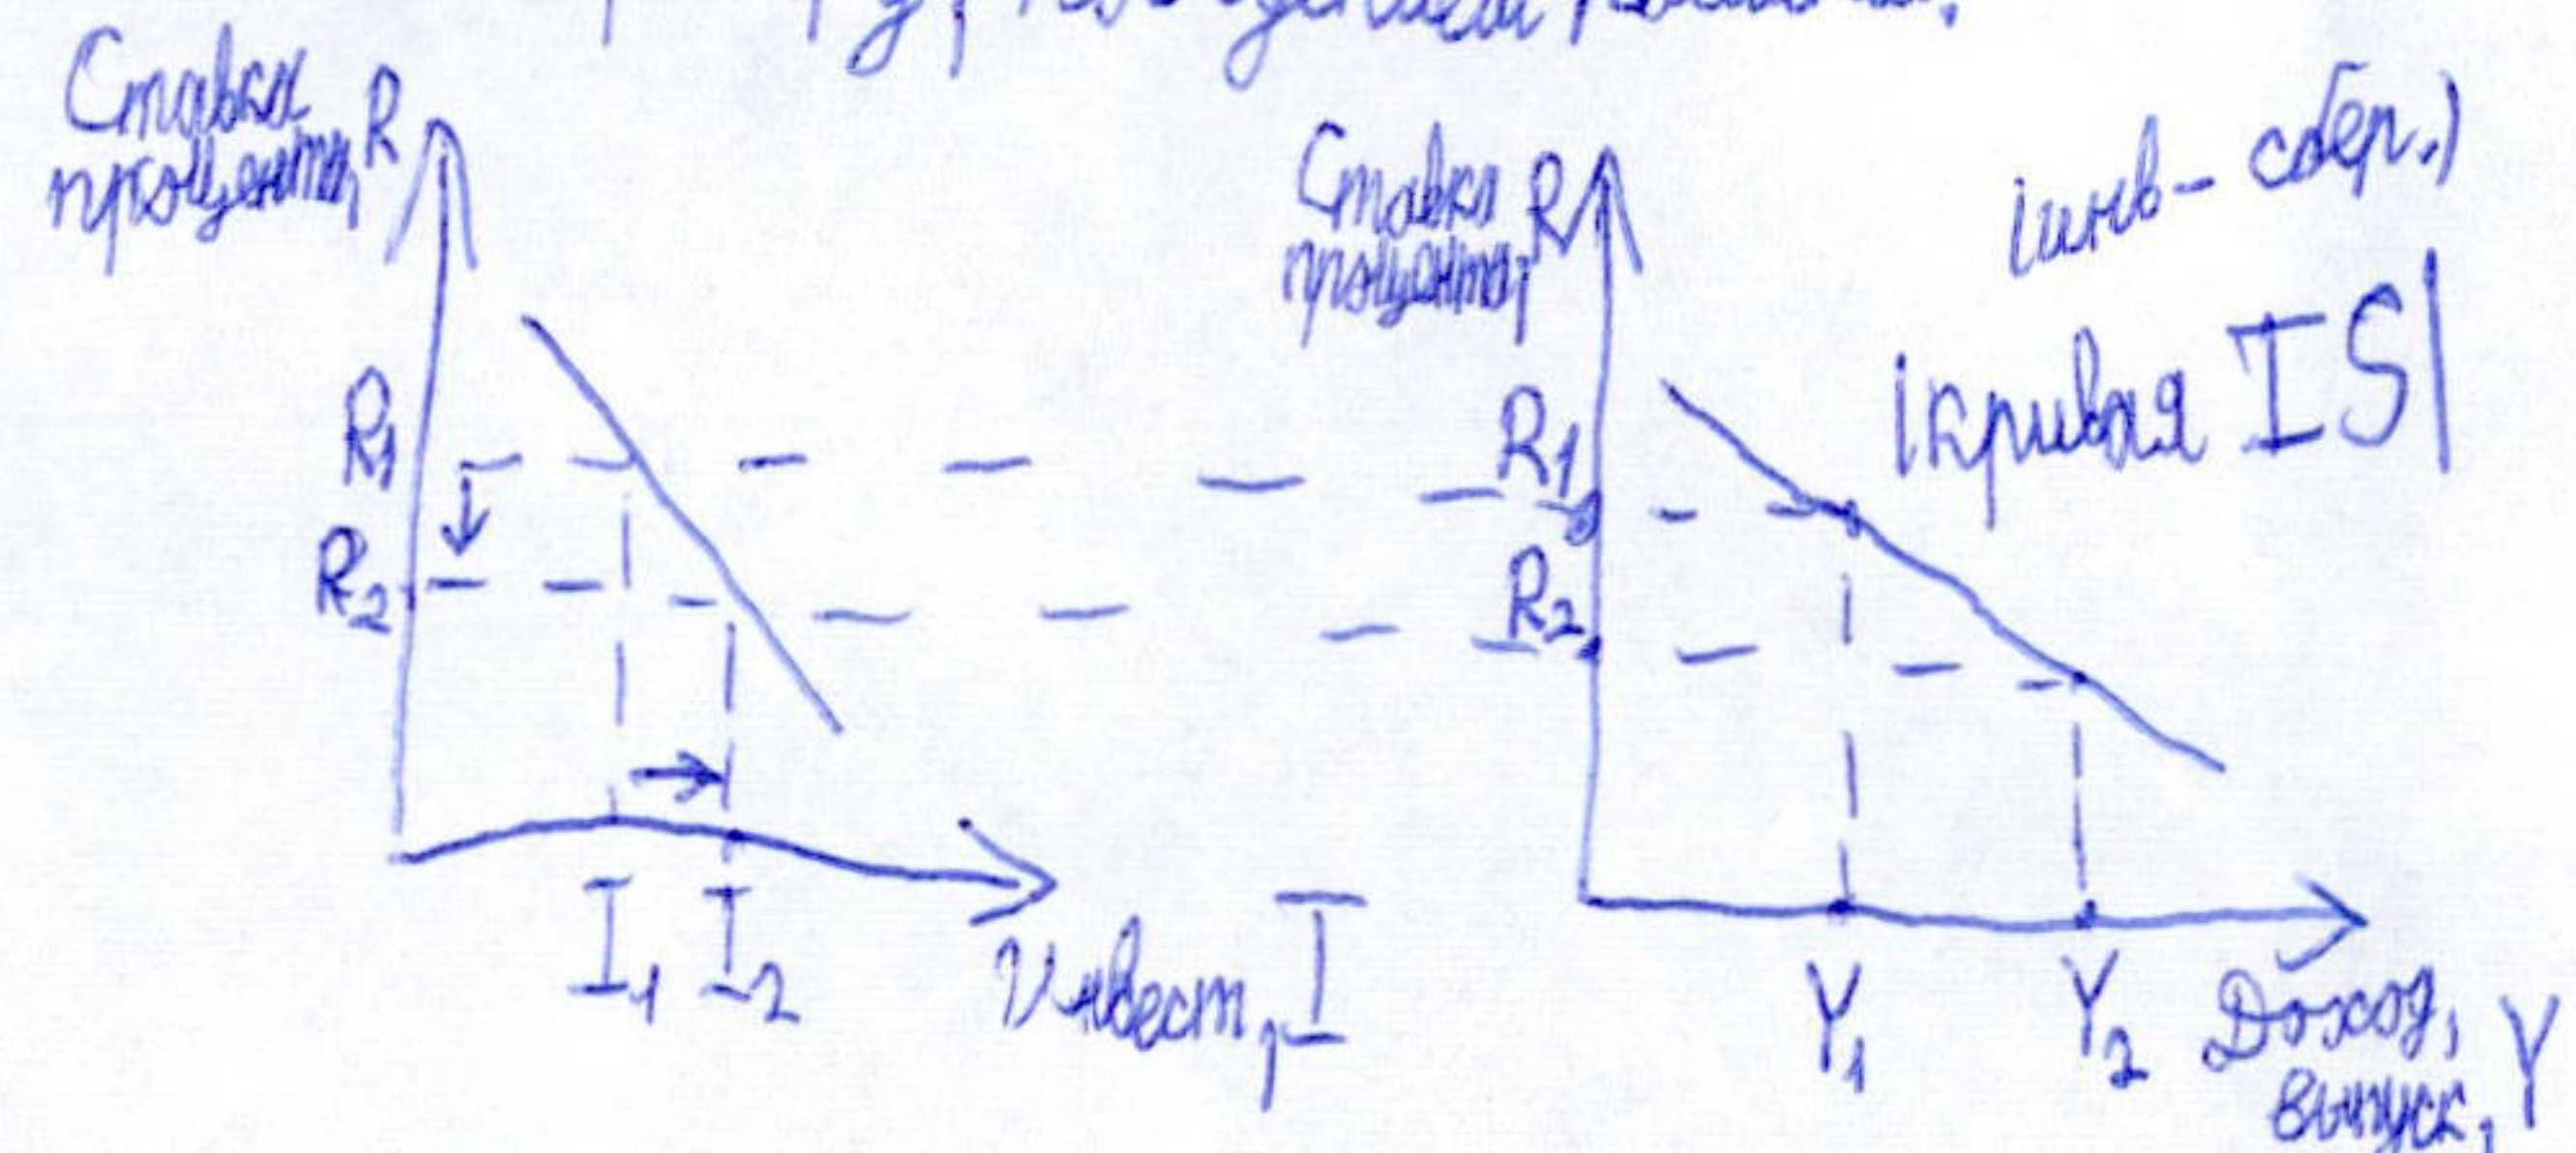 Ставка
процента, R
R1
R2
I1 I2
Инвест, I
Ставка
процента, R
(инв - сбер.)
|кривая IS|
R1
R2
Y1
Y2
Доход,
выпуск, Y